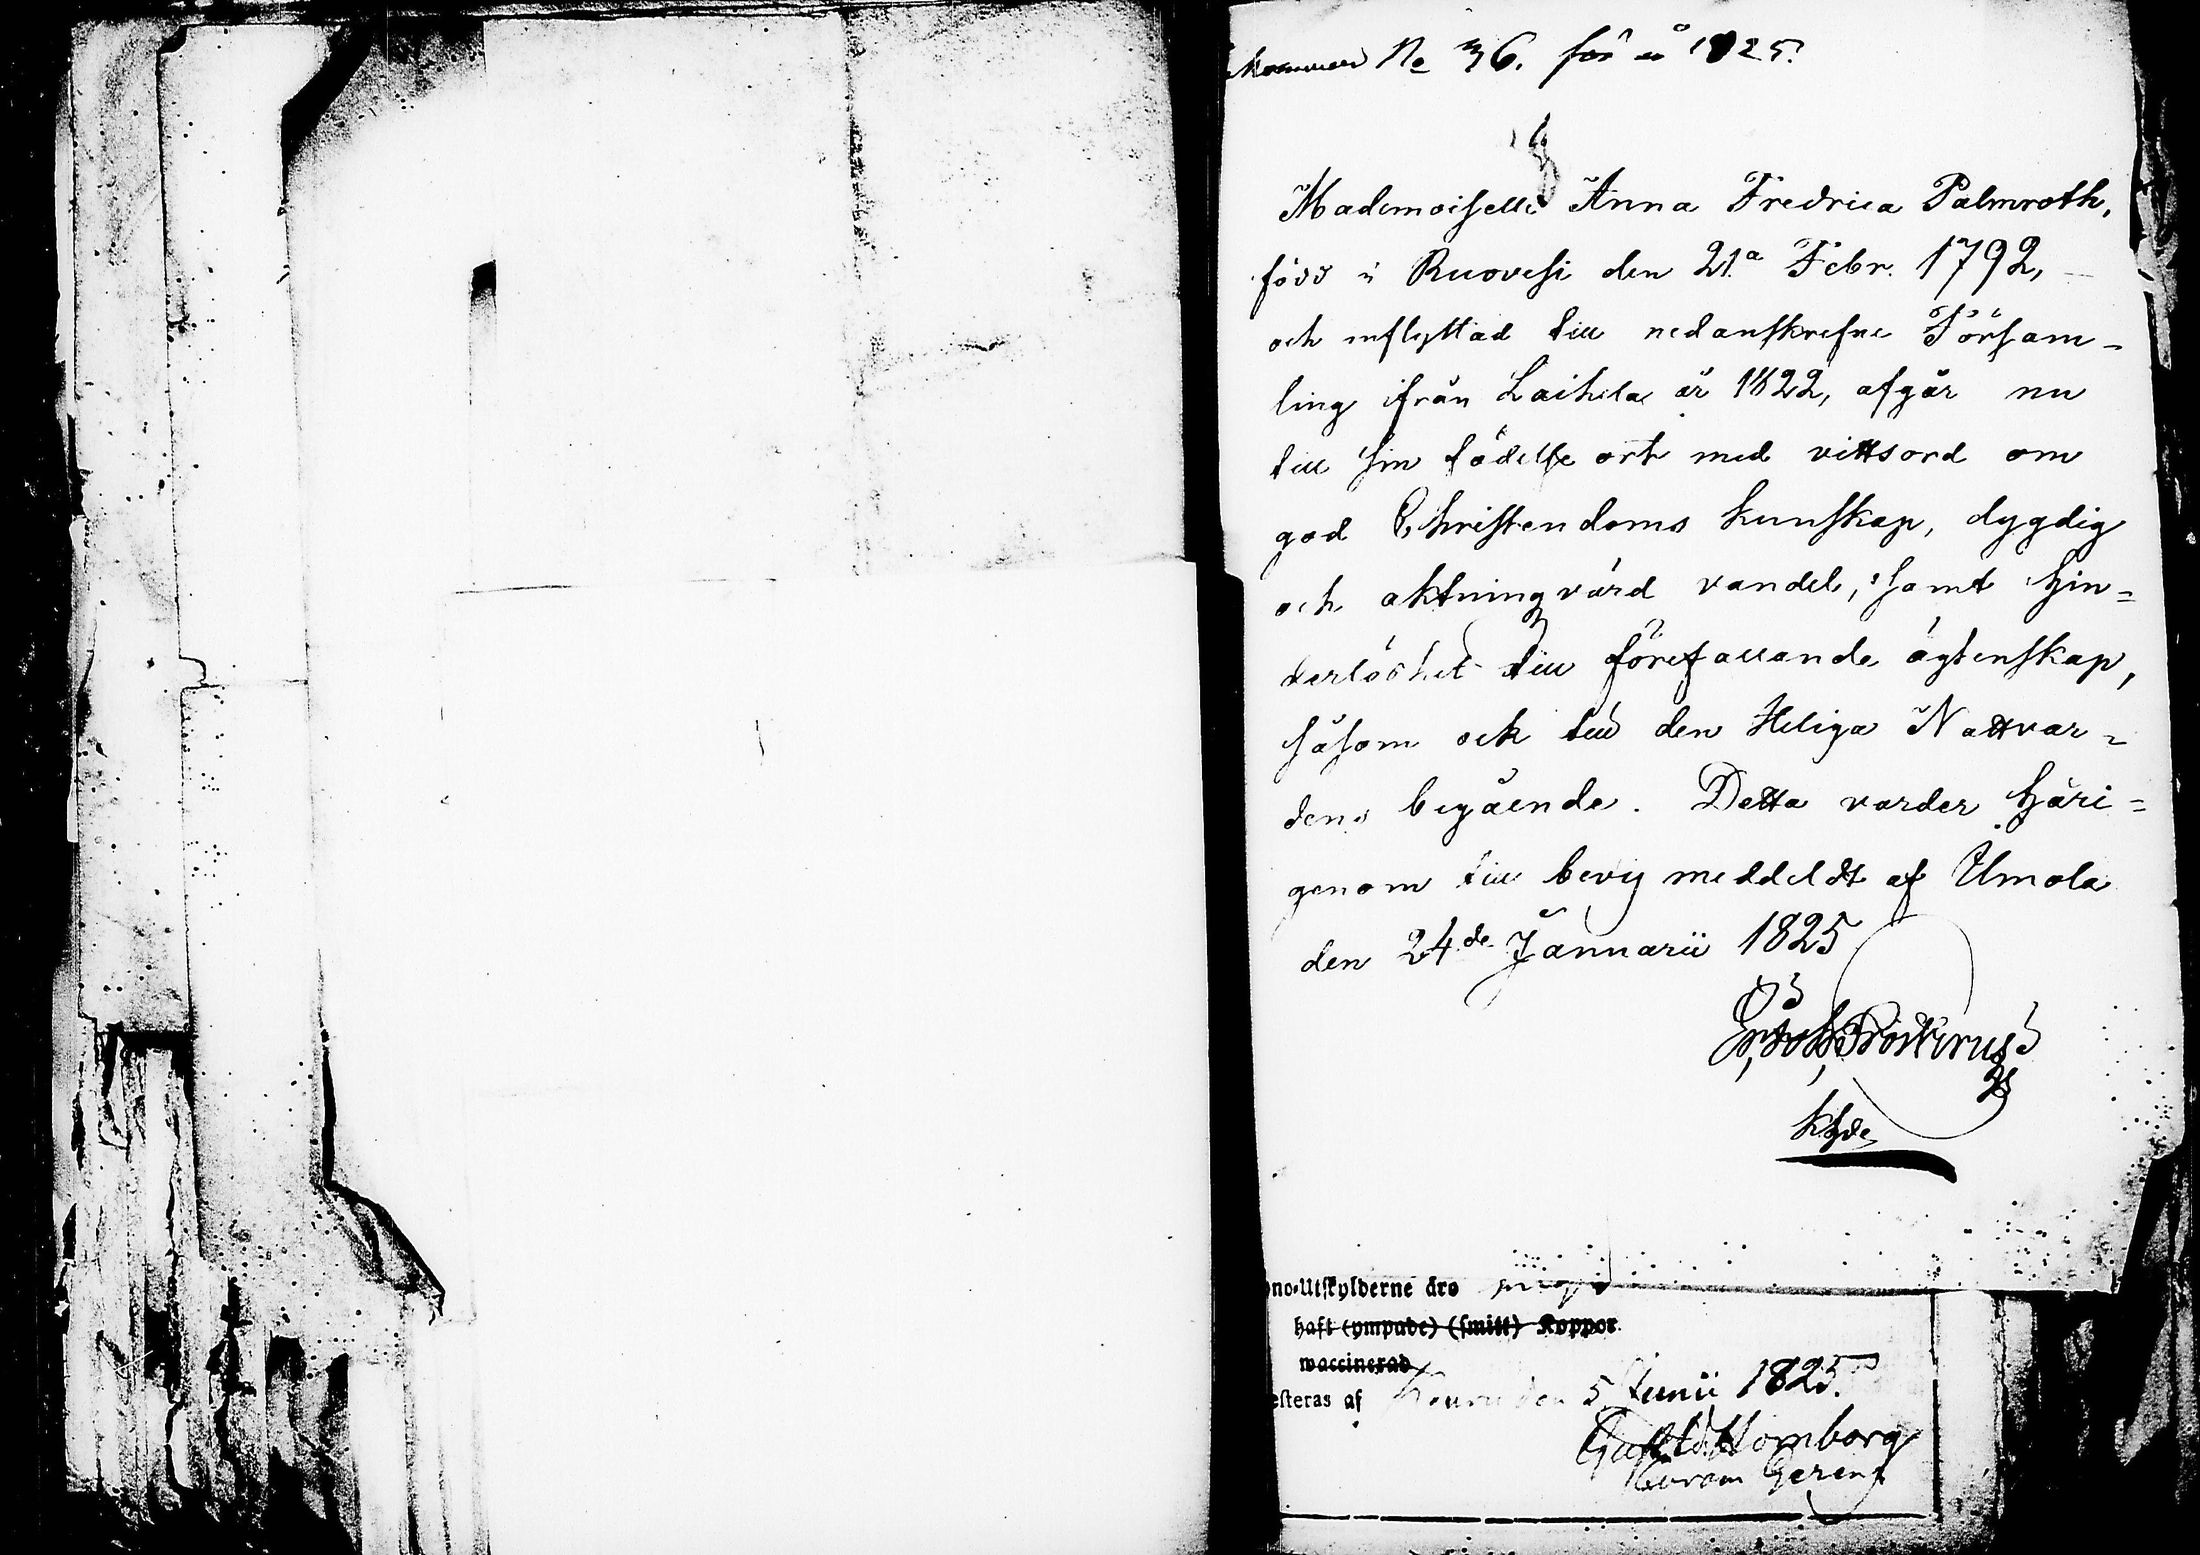 No 36. för år 1825.
Mademoiselle Anna Fredrica Palmroth,
född i Ruovesi den 21.a Febr. 1792,
och inflyttad till nedanskrefne Försam-
ling ifrån Laihela år 1822, afgår nu
till sin födelse ort med vittsord om
god Christendoms kunskap, dygdig
och aktningvärd vandel, samt hin=
derlöshet till förefallande ägtenskap,
såsom ock till den Heliga Nattvar=
dens begående. Detta varder häri=
genom till bevis meddeldt af Ilmola
den 24de Januarii 1825
Khde
ono-Utskylderne äro
haft (ympade) (smitt) Koppor.
waccinerad
esteras af den 5 Junii 1825.
Holmborg